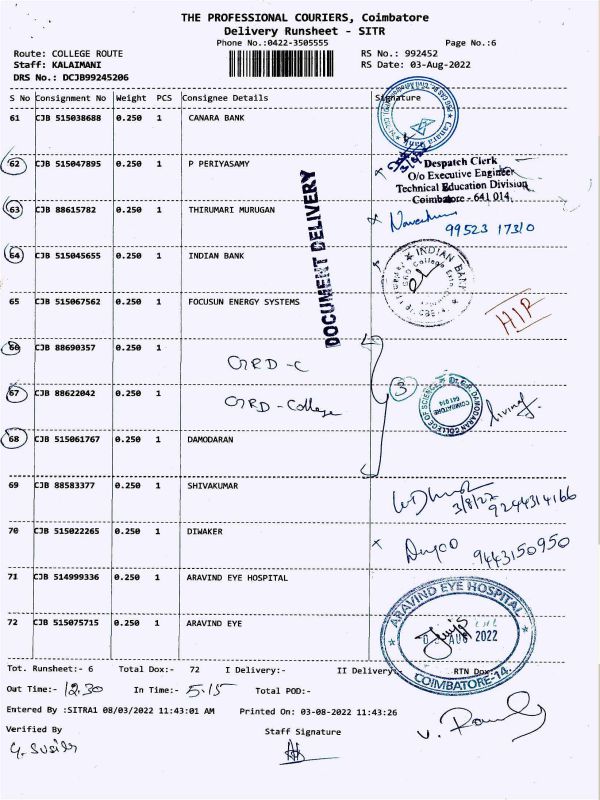 THE PROFESSIONAL COURIERS, Coimbatore
Delivery Runsheet - SITR
Phone No.:0422-3505555
Page No.:6
Route: COLLEGE ROUTE
RS No.: 992452
Staff: KALAIMANI
RS Date: 03-Aug-2022
DRS No.: DCJB99245206
S No Consignment No Weight PCS Consignee Details Signature
61 CJB 515038688 0.250 1 CANARA BANK
62 CJB 515047895 0.250 1 P PERIYASAMY
Despatch Clerk
O/o Executive Engineer
Technical Education Division
Coimbatore - 641 014.
63 CJB 88615782 0.250 1 THIRUMARI MURUGAN
99523 17310
DOCUMENT DELIVERY
64 CJB 515045655 0.250 1 INDIAN BANK
INDIAN BANK
65 CJB 515067562 0.250 1 FOCUSUN ENERGY SYSTEMS
HIP
66 CJB 88690357 0.250 1
GRD - C
67 CJB 88622042 0.250 1
GRD - College
3
Dr. G.R. DAMODARAN COLLEGE OF SCIENCE
COIMBATORE
641 014
68 CJB 515061767 0.250 1 DAMODARAN
69 CJB 88583377 0.250 1 SHIVAKUMAR
3/8/22
9244314166
70 CJB 515022265 0.250 1 DIWAKER
9443150950
71 CJB 514999336 0.250 1 ARAVIND EYE HOSPITAL
ARAVIND EYE HOSPITAL
72 CJB 515075715 0.250 1 ARAVIND EYE
AUG 2022
COIMBATORE-14.
Tot. Runsheet:- 6 Total Dox:- 72 I Delivery:- II Delivery:- RTN Dox:-
Out Time:- 12.30 In Time:- 5.15 Total POD:-
Entered By :SITRA1 08/03/2022 11:43:01 AM Printed On: 03-08-2022 11:43:26
Verified By
Staff Signature